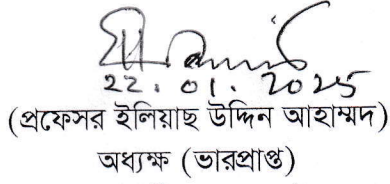 22.01.2025
(প্রফেসর ইলিয়াছ উদ্দিন আহাম্মদ)
অধ্যক্ষ (ভারপ্রাপ্ত)